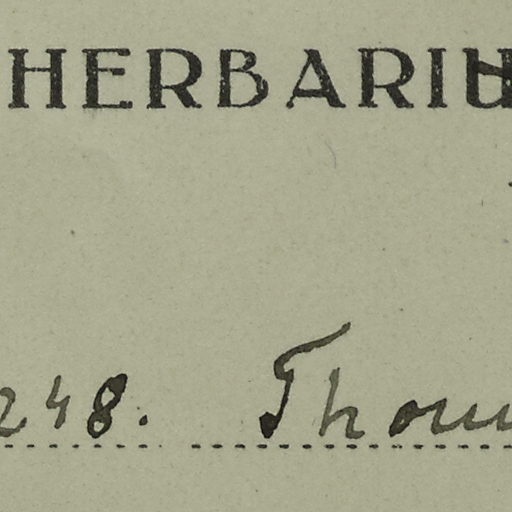 HERBARIU
248. Thom